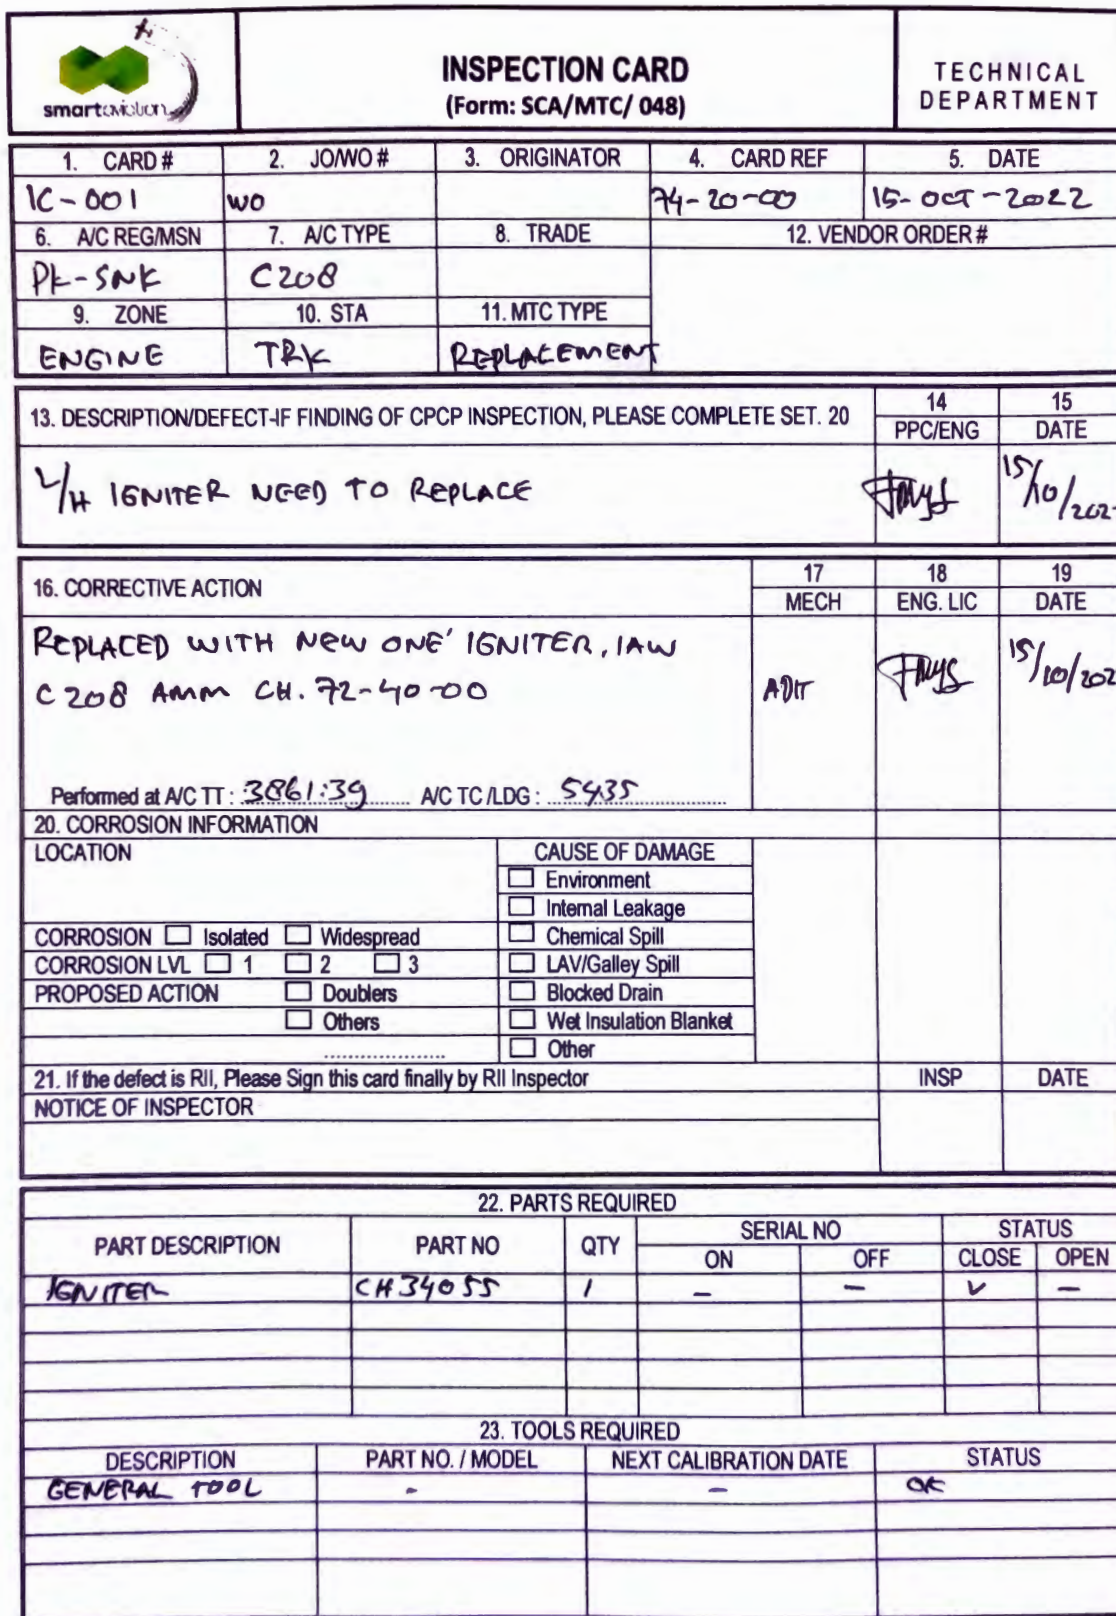 smartaviation
INSPECTION CARD
(Form: SCA/MTC/ 048)
TECHNICAL
DEPARTMENT
1. CARD # 2. JO/WO # 3. ORIGINATOR 4. CARD REF 5. DATE
IC-001 WO 74-20-00 15-OCT-2022
6. A/C REG/MSN 7. A/C TYPE 8. TRADE 12. VENDOR ORDER #
PK-SNK C208
9. ZONE 10. STA 11. MTC TYPE
ENGINE TRK REPLACEMENT
13. DESCRIPTION/DEFECT-IF FINDING OF CPCP INSPECTION, PLEASE COMPLETE SET. 20 14 15
PPC/ENG DATE
L/H IGNITER NEED TO REPLACE 15/10/202
16. CORRECTIVE ACTION 17 18 19
MECH ENG. LIC DATE
REPLACED WITH NEW ONE' IGNITER, IAW
C208 AMM CH. 72-40-00 ADIT 15/10/202
Performed at A/C TT : 3861:39 A/C TC /LDG : 5435
20. CORROSION INFORMATION
LOCATION CAUSE OF DAMAGE
Environment
Internal Leakage
CORROSION Isolated Widespread Chemical Spill
CORROSION LVL 1 2 3 LAV/Galley Spill
PROPOSED ACTION Doublers Blocked Drain
Others Wet Insulation Blanket
.................... Other
21. If the defect is RII, Please Sign this card finally by RII Inspector INSP DATE
NOTICE OF INSPECTOR
22. PARTS REQUIRED
PART DESCRIPTION PART NO QTY SERIAL NO STATUS
ON OFF CLOSE OPEN
IGNITER CH34055 1 - - ✓ -
23. TOOLS REQUIRED
DESCRIPTION PART NO. / MODEL NEXT CALIBRATION DATE STATUS
GENERAL TOOL - - OK